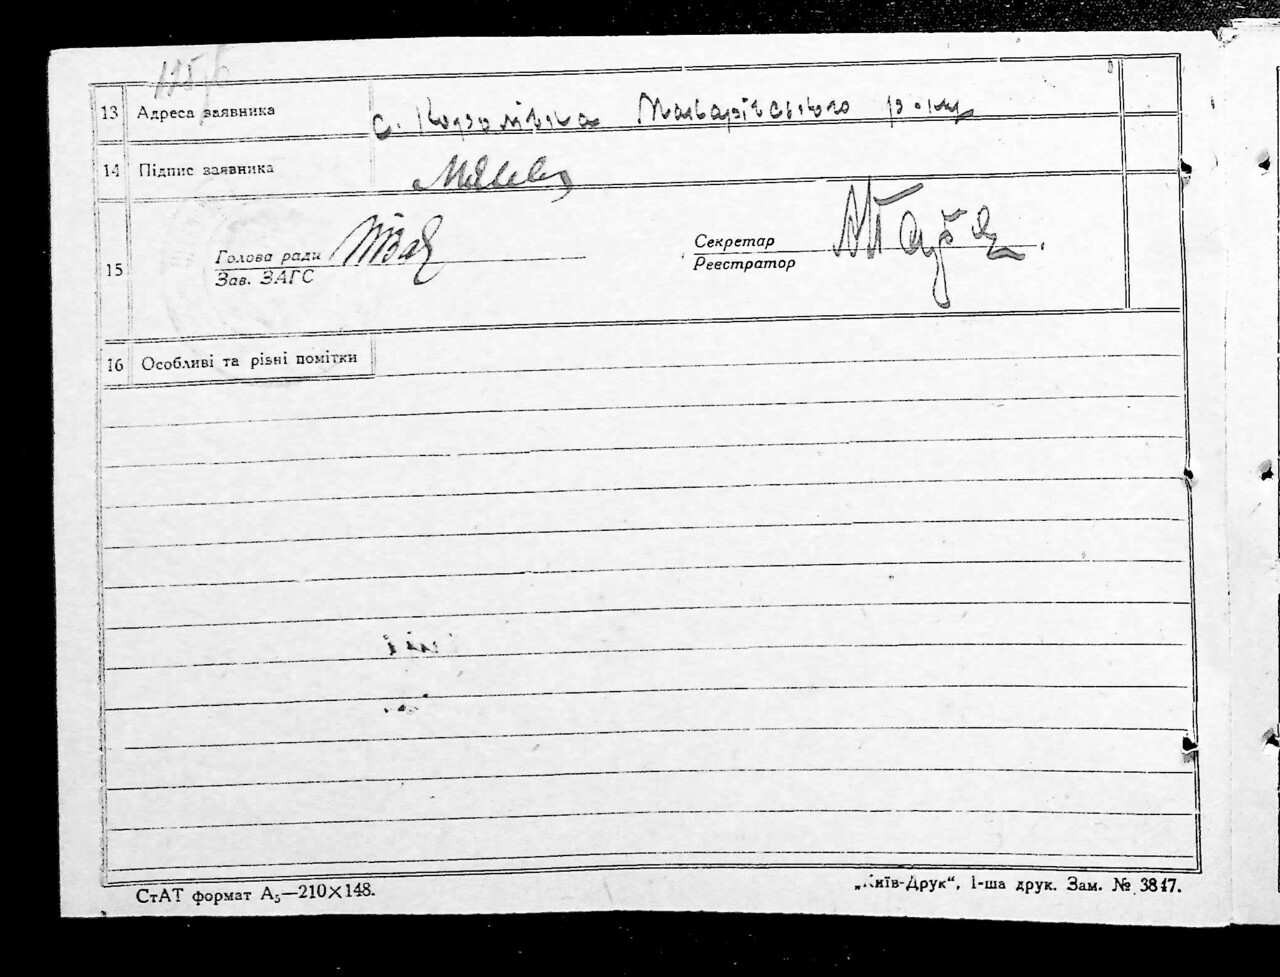 13 Адреса заявника с. Королівка Макарівського р-ну
14 Підпис заявника
15 Голова ради Секретар
Зав. ЗАГС Реєстратор
16 Особливі та різні помітки
СтАТ формат А₅—210×148. „Київ-Друк“, 1-ша друк. Зам. № 3847.